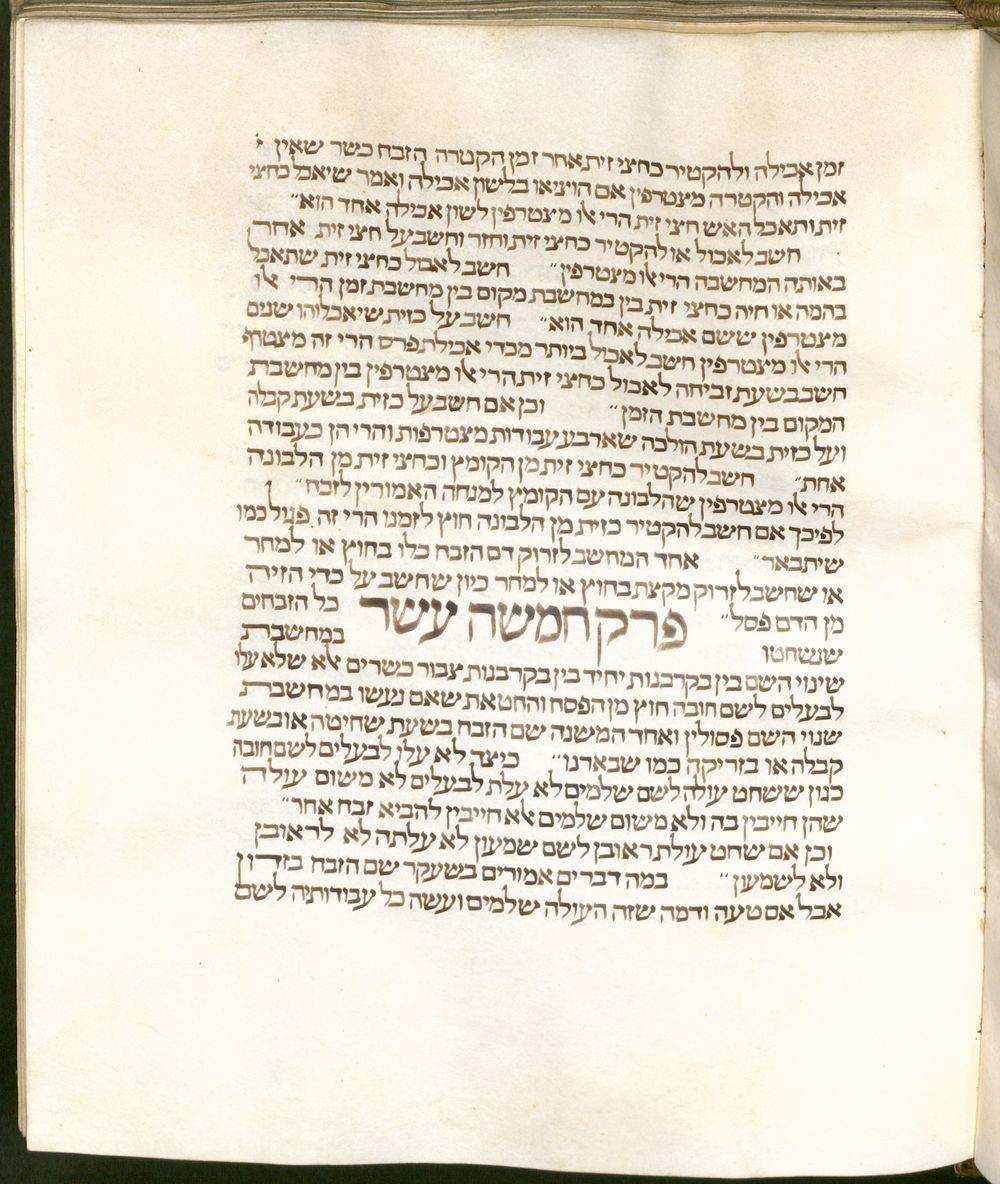 זמן אכילה ולהקטיר כחצי זית אחר זמן הקטרה הזבח כשר שאין
אכילה והקטרה מצטרפין אם הוציאו בלשון אכילה ואמר שיאכל כחצי
זית ותאכל האש חצי זית הרי אלו מצטרפין לשון אכילה אחד הוא״
חשב לאכול או להקטיר כחצי זית וחזר וחשב על חצי זית אחר
באותה המחשבה הרי אלו מצטרפין״ חשב לאכול כחצי זית שתאכל
בהמה או חיה כחצי זית בין במחשבת מקום בין מחשבת זמן הרי אלו
מצטרפין ששם אכילה אחד הוא״ חשב על כזית שיאכלוהו שנים
הרי אלו מצטרפין חשב לאכול ביותר מכדי אכילת פרס הרי זה מצטרף
חשב בשעת זביחה לאכול כחצי זית הרי אלו מצטרפין בין מחשבת
המקום בין מחשבת הזמן״ וכן אם חשב על כזית בשעת קבלה
ועל כזית בשעת הולכה שארבע עבודות מצטרפות והרי הן כעבודה
אחת״ חשב להקטיר כחצי זית מן הקומץ וכחצי זית מן הלבונה
הרי אלו מצטרפין שהלבונה עם הקומץ למנחה האמורין לזבח״
לפיכך אם חשב להקטיר כזית מן הלבונה חוץ לזמנו הרי זה פגול כמו
שיתבאר״ אחד המחשב לזרוק דם הזבח כלו בחוץ או למחר
או שחשב לזרוק מקצת בחוץ או למחר כיון שחשב על כדי הזיה
מן הדם פסל״ פרק חמשה עשר כל הזבחים
שנשחטו במחשבת
שינוי השם בין בקרבנות יחיד בין בקרבנות צבור כשרים אלא שלא עלו
לבעלים לשם חובה חוץ מן הפסח והחטאת שאם נעשו במחשבת
שנוי השם פסולין ואחד המשנה שם הזבח בשעת שחיטה או בשעת
קבלה או בזריקה כמו שבארנו״ כיצד לא עלו לבעלים לשם חובה
כגון ששחט עולה לשם שלמים לא עלת לבעלים לא משום עולה
שהן חייבין בה ולא משום שלמים אלא חייבין להביא זבח אחר״
וכן אם שחט עולת ראובן לשם שמעון לא עלתה לא לראובן
ולא לשמעון״ במה דברים אמורים בשעקר שם הזבח בזדון
אבל אם טעה ודמה שזה העולה שלמים ועשה כל עבודותיה לשם